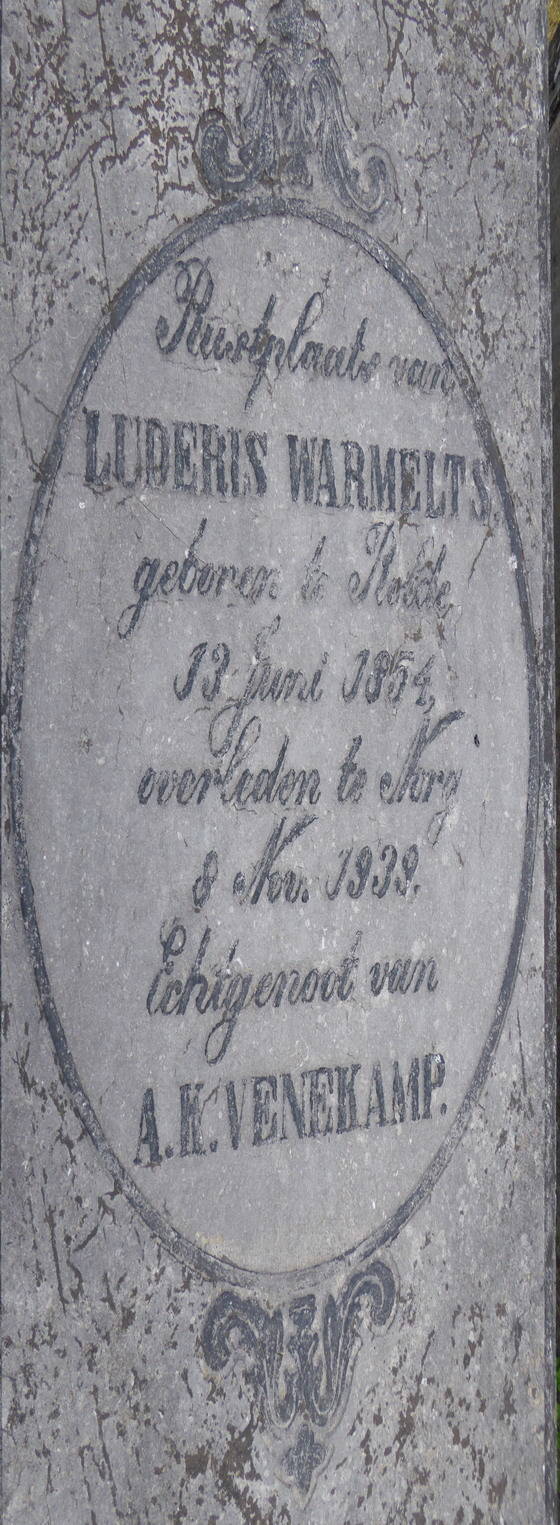 Rustplaats van
LUDERIS WARMELTS,
geboren te Rolde,
13 Juni 1854,
overleden te Norg
8 Nov. 1939.
Echtgenoot van
A.K. VENEKAMP.